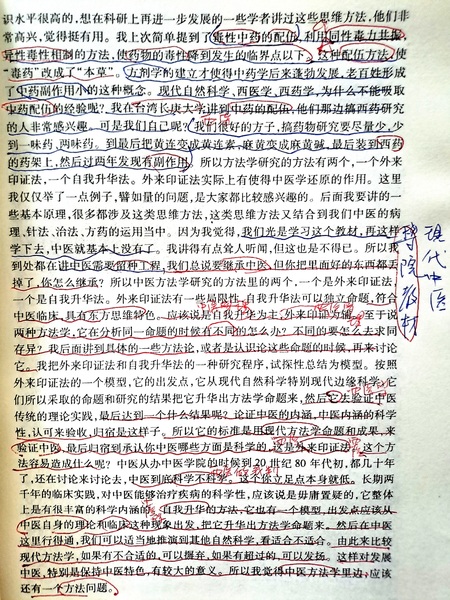 识水平很高的,想在科研上再进一步发展的一些学者讲过这些思维方法,他们非
常高兴,觉得挺有用。我上次简单提到了毒性中药的配伍,利用同性毒力共振、
异性毒性相制的方法,使药物的毒性降到发生的临界点以下。这种配伍方法,使
“毒药”改成了“本草”。方剂学的建立才使得中药学后来蓬勃发展,老百姓形成
了中药副作用小的这种概念。现代自然科学,西医学,西药学,为什么不能吸取
中药配伍的经验呢?我在台湾长庚大学讲到中药的配伍,他们那边搞西药研究
的人非常感兴趣。可是我们自己呢?我们很好的方子,搞药物研究要尽量少,少
到一味药,两味药。到最后把黄连变成黄连素,麻黄变成麻黄碱,最后装到西药
的药架上,然后过两年发现有副作用。所以方法学研究的方法有两个,一个外来
印证法,一个自我升华法。外来印证法实际上有使得中医学还原的作用。这里
我仅仅举了一点例子,譬如量的问题,是大家都比较感兴趣的。后面我要讲的一
些基本原理,很多都涉及这类思维方法,这类思维方法又结合到我们中医的病
理、针法、治法、方药的运用当中。因为我觉得,我们光是学习这个教材,再这样
学下去,中医就基本上没有了。我讲得有点耸人听闻,但这也是不得已。所以我
到处都在讲中医需要留种工程,我们总说要继承中医,但你把里面好的东西都丢
掉了,你怎么继承?所以中医方法学研究的方法里的两个,一个是外来印证法,
一个是自我升华法。外来印证法有一些局限性,自我升华法可以独立命题,符合
中医临床,具有东方思维特色。应该说是自我升华为主,外来印证为辅。至于说
两种方法学,它在分析同一命题的时候有不同的怎么办?不同的要怎么去求同
存异?我后面讲到具体的一些方法论,或者是认识论这些命题的时候,再来讨论
它。我把外来印证法和自我升华法的一种研究程序,试探性总结为模型。按照
外来印证法的一个模型,它的出发点,它从现代自然科学特别现代边缘科学,它
们所以采取的命题和研究的结果把它升华出方法学命题来,然后它去验证中医
传统的理论实践,最后达到一个什么结果呢?论证中医的内涵,中医内涵的科学
性,认可来验收,归宿是这样子。所以它的标准是用现代方法学命题和成果,来
验证中医,最后归宿到承认你中医哪些方面是科学的,这是外来印证法。这个方
法容易造成什么呢?中医从办中医学院的时候到 20 世纪 80 年代初,都几十年
了,还在讨论来讨论去,中医到底科学不科学。这个你立足点本身就低。长期两
千年的临床实践,对中医能够治疗疾病的科学性,应该说是毋庸置疑的,它整体
上是有很丰富的科学内涵的。自我升华的方法,它也有一个模型,出发点应该从
中医自身的理论和临床这种现象出发,把它升华出方法学命题来。然后在中医
这里行得通,我们可以适当地推演到其他自然科学,看适合不适合。由此来比较
现代方法学,如果有不合适的,可以摒弃,如果有超过的,可以发扬。这样对发展
中医,特别是保持中医特色,有较大的意义。所以我觉得中医方法学里边,应该
还有一个方法问题。
现代中医
学院教材